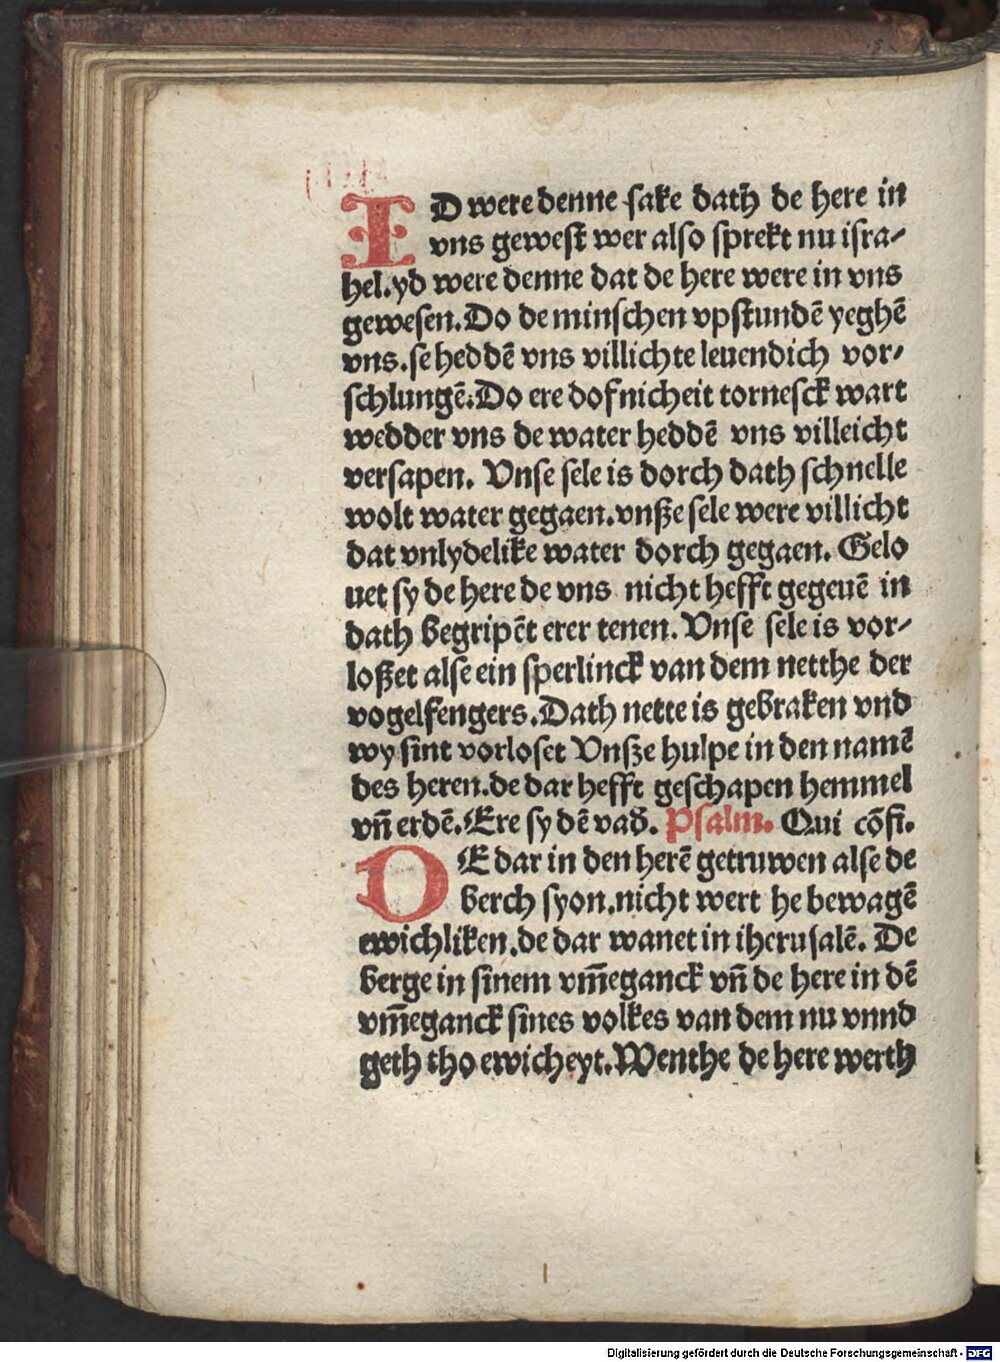 ID were denne sake dath de here in
vns gewest wer also sprekt nu isra-
hel. yd were denne dat de here were in vns
gewesen. Do de minschen vpstundē yeghē
vns. se heddē vns villichte leuendich vor-
schlungē. Do ere dofnicheit tornesck wart
wedder vns de water heddē vns villeicht
versapen. Vnse sele is dorch dath schnelle
wolt water gegaen. vnße sele were villicht
dat vnlydelike water dorch gegaen. Gelo
uet sy de here de vns nicht hefft gegeuē in
dath begripēt erer tenen. Vnse sele is vor-
loßet alse ein sperlinck van dem netthe der
vogelfengers. Dath nette is gebraken vnd
wy sint vorloset Vnsze hulpe in den namē
des heren. de dar hefft geschapen hemmel
vn̄ erdē. Ere sy dē vad. Psalm. Qui cōfi.
DE dar in den herē getruwen alse de
berch syon. nicht wert he bewagē
ewichliken. de dar wanet in iherusalē. De
berge in sinem vm̄eganck vn̄ de here in dē
vm̄eganck sines volkes van dem nu vnnd
geth tho ewicheyt. Wenthe de here werth
Digitalisierung gefördert durch die Deutsche Forschungsgemeinschaft - DFG